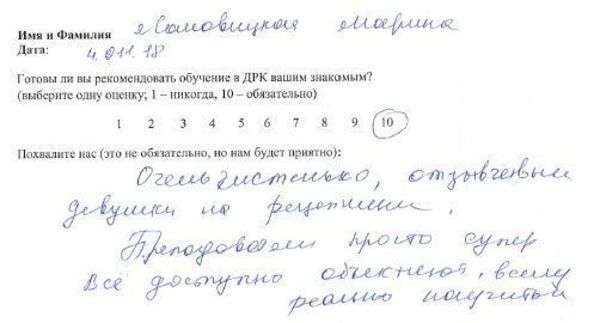 Имя и Фамилия Самовицкая Марина
Дата: 4.011.18
Готовы ли вы рекомендовать обучение в ДРК вашим знакомым?
(выберите одну оценку; 1 – никогда, 10 – обязательно)
1 2 3 4 5 6 7 8 9 10
Похвалите нас (это не обязательно, но нам будет приятно):
Очень чистенько, отзывчевыи
девушки на рецепшени.
Преподователи просто супер
Всё доступно объесняют, всему
реально научится